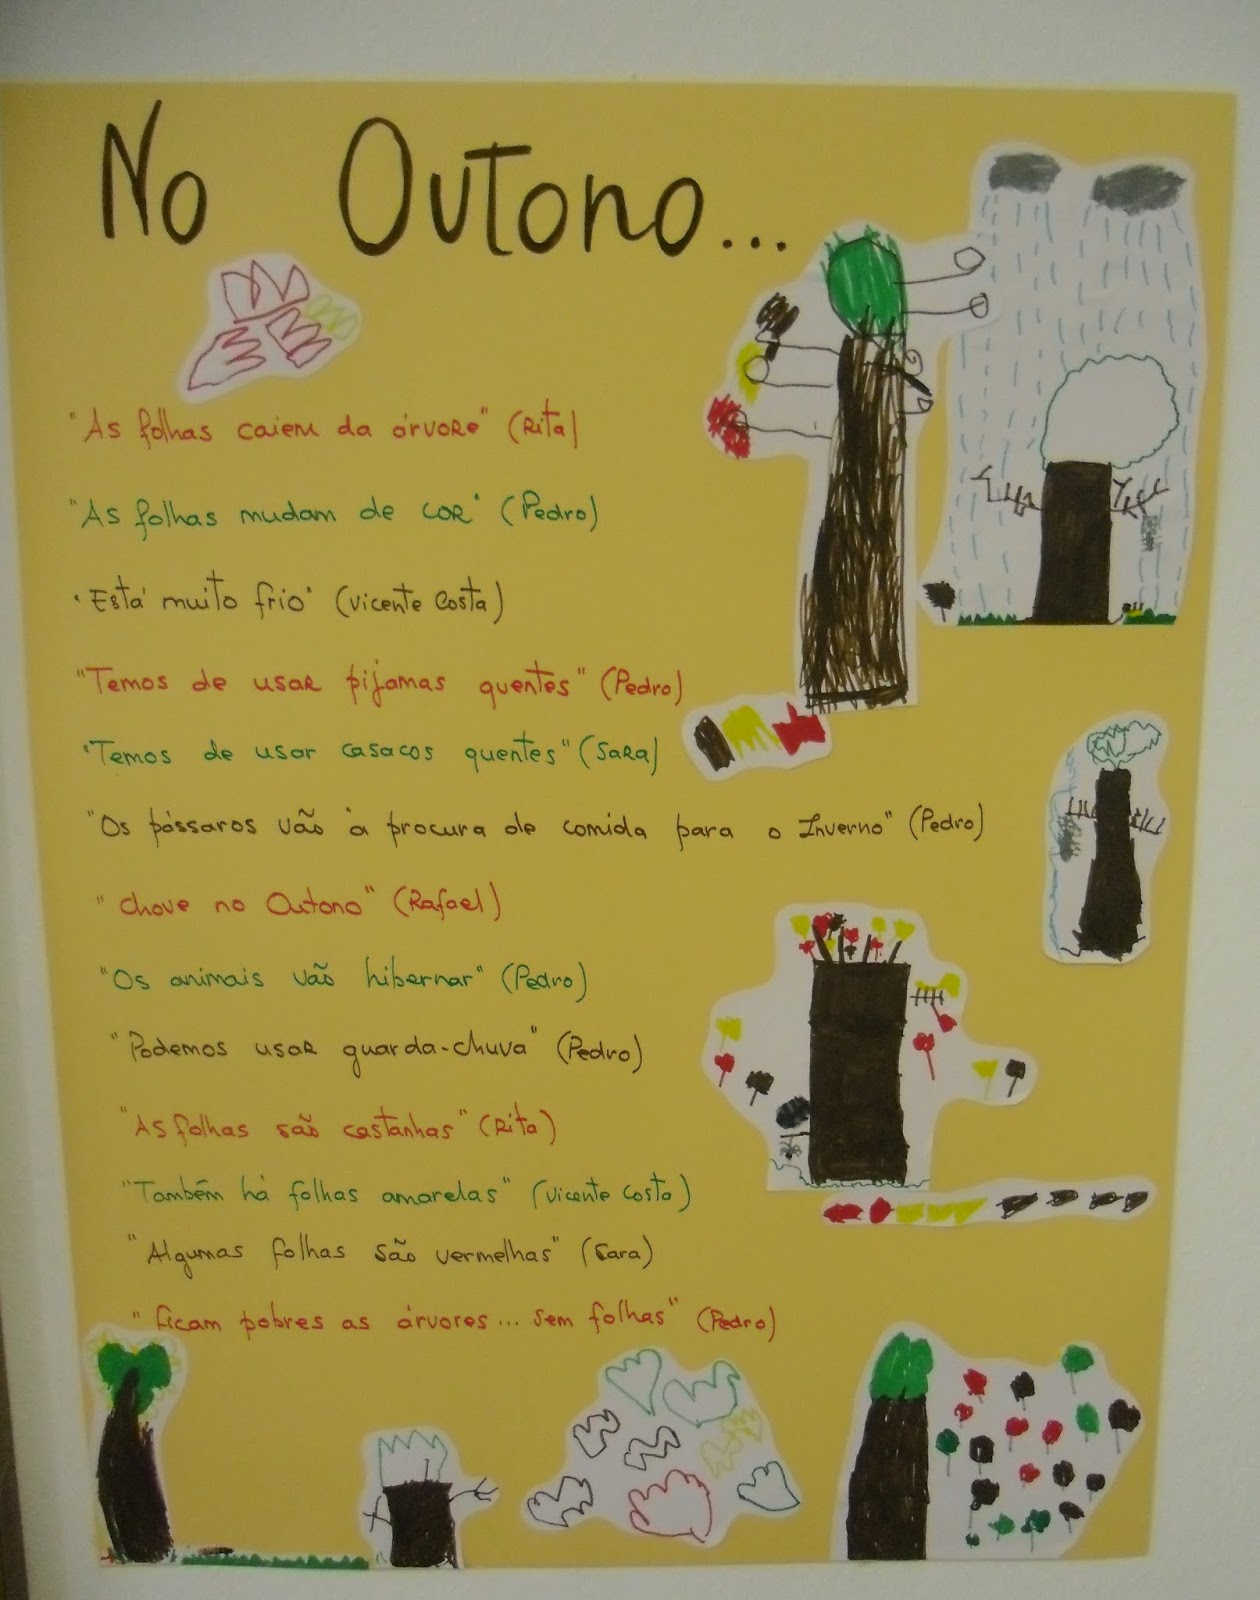 No Outono...
"As folhas caiem da árvore" (Rita)
"As folhas mudam de cor" (Pedro)
"Está muito frio" (Vicente Costa)
"Temos de usar pijamas quentes" (Pedro)
"Temos de usar casacos quentes" (Sara)
"Os pássaros vão à procura de comida para o Inverno" (Pedro)
"Chove no Outono" (Rafael)
"Os animais vão hibernar" (Pedro)
"Podemos usar guarda-chuva" (Pedro)
"As folhas são castanhas" (Rita)
"Também há folhas amarelas" (Vicente Costa)
"Algumas folhas são vermelhas" (Sara)
"Ficam pobres as árvores... sem folhas" (Pedro)